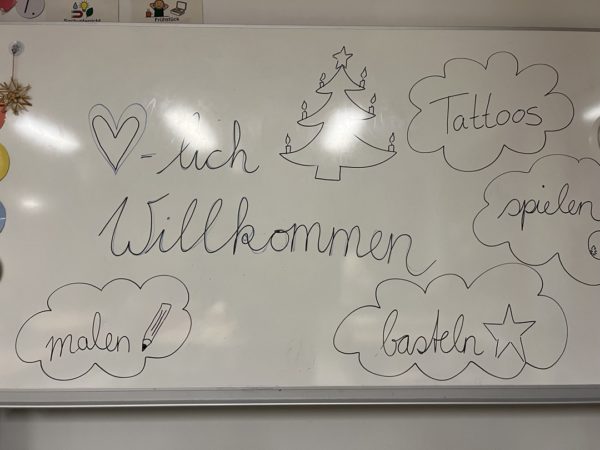 Frühstück
Tattoos
-lich
spielen
Willkommen
malen
basteln